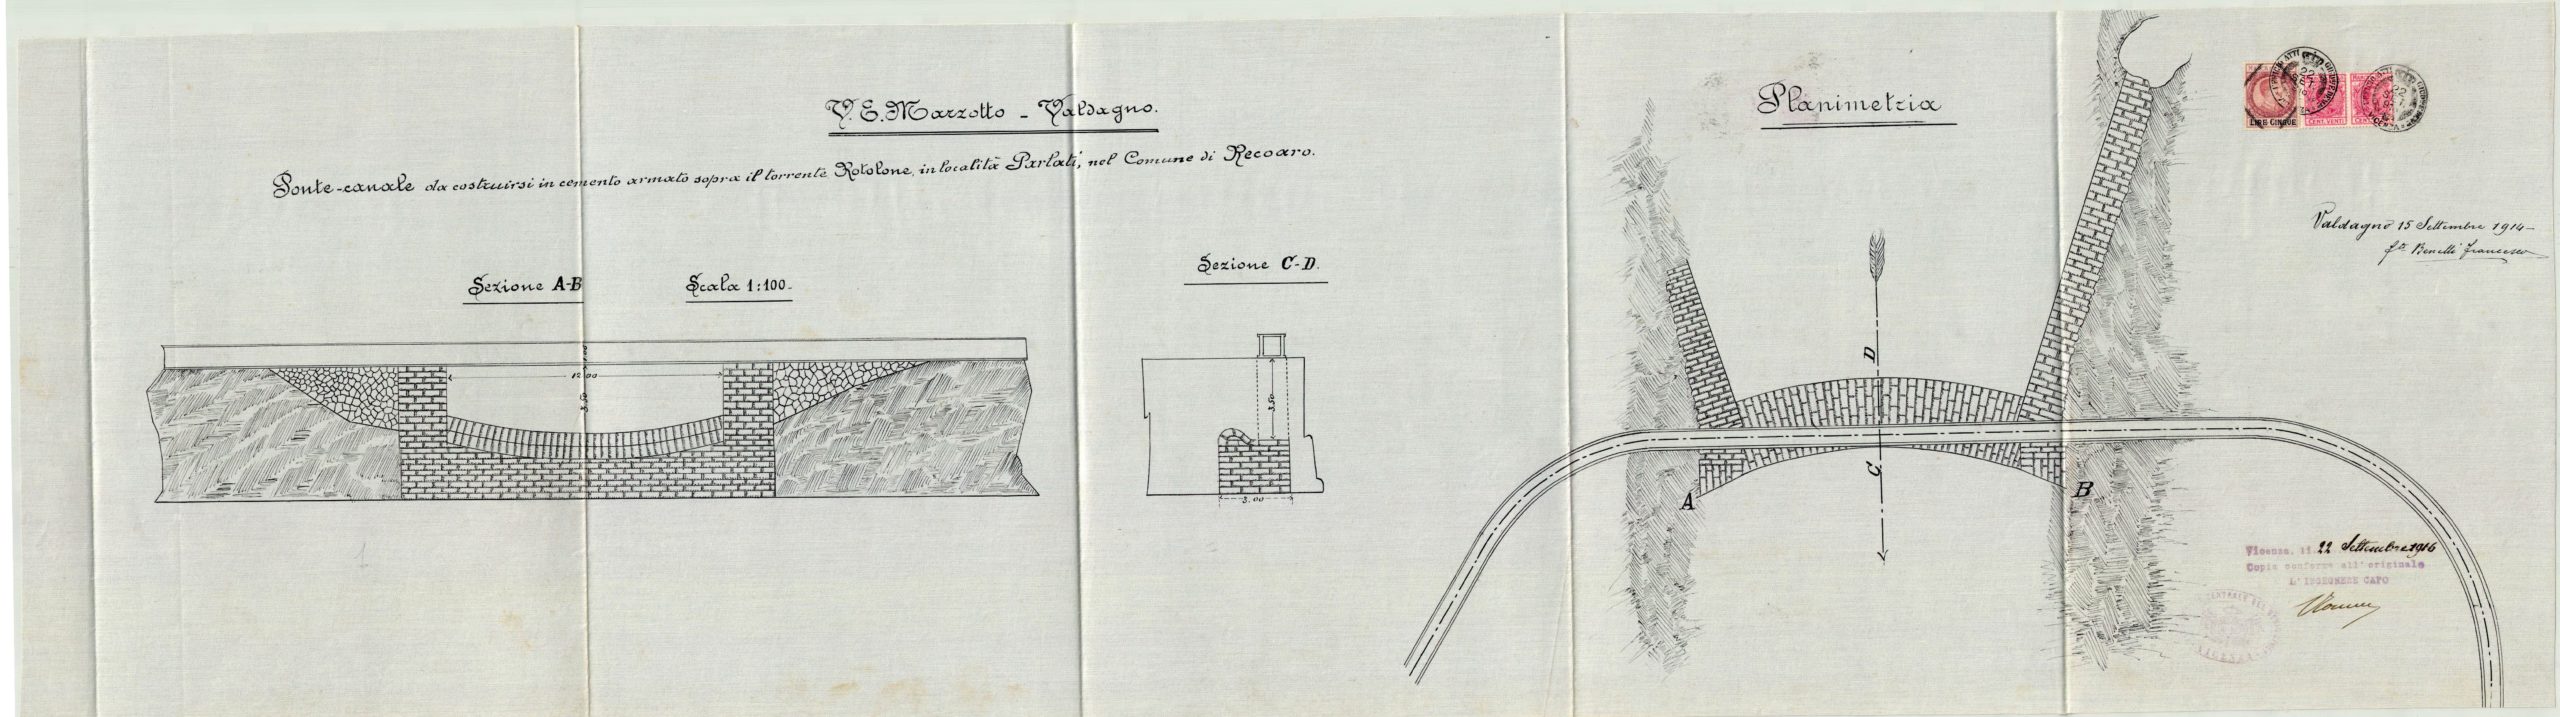 V. E. Marzotto - Valdagno.
Ponte-canale da costruirsi in cemento armato sopra il torrente Rotolone, in località Parlati, nel Comune di Recoaro.
Sezione A-B
Scala 1:100-
1.00
12.00
3.50
Sezione C-D.
3.50
3.00
Planimetria
D
C
A
B
LIRE CINQUE
CENT. VENTI
CENT.
Valdagno 15 Settembre 1914-
fto Benetti Francesco
Vicenza, li 22 Settembre 1916
Copia conforme all'originale
L'INGEGNERE CAPO
VICENZA